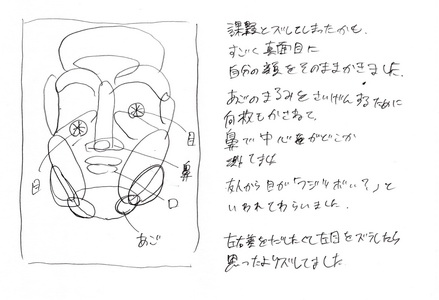 課題とズレてしまったかも.
すごく真面目に
自分の顔をそのままかきました.
あごのまるみをさいげんするために
何枚もかさねて、
鼻で中心がどこか
友人から目が「フジツボぽい？」と
いわれてわらいました.
左右差をだしたくて左目をズラしたら
思ったよりズレてました
目
鼻
口
目
あご